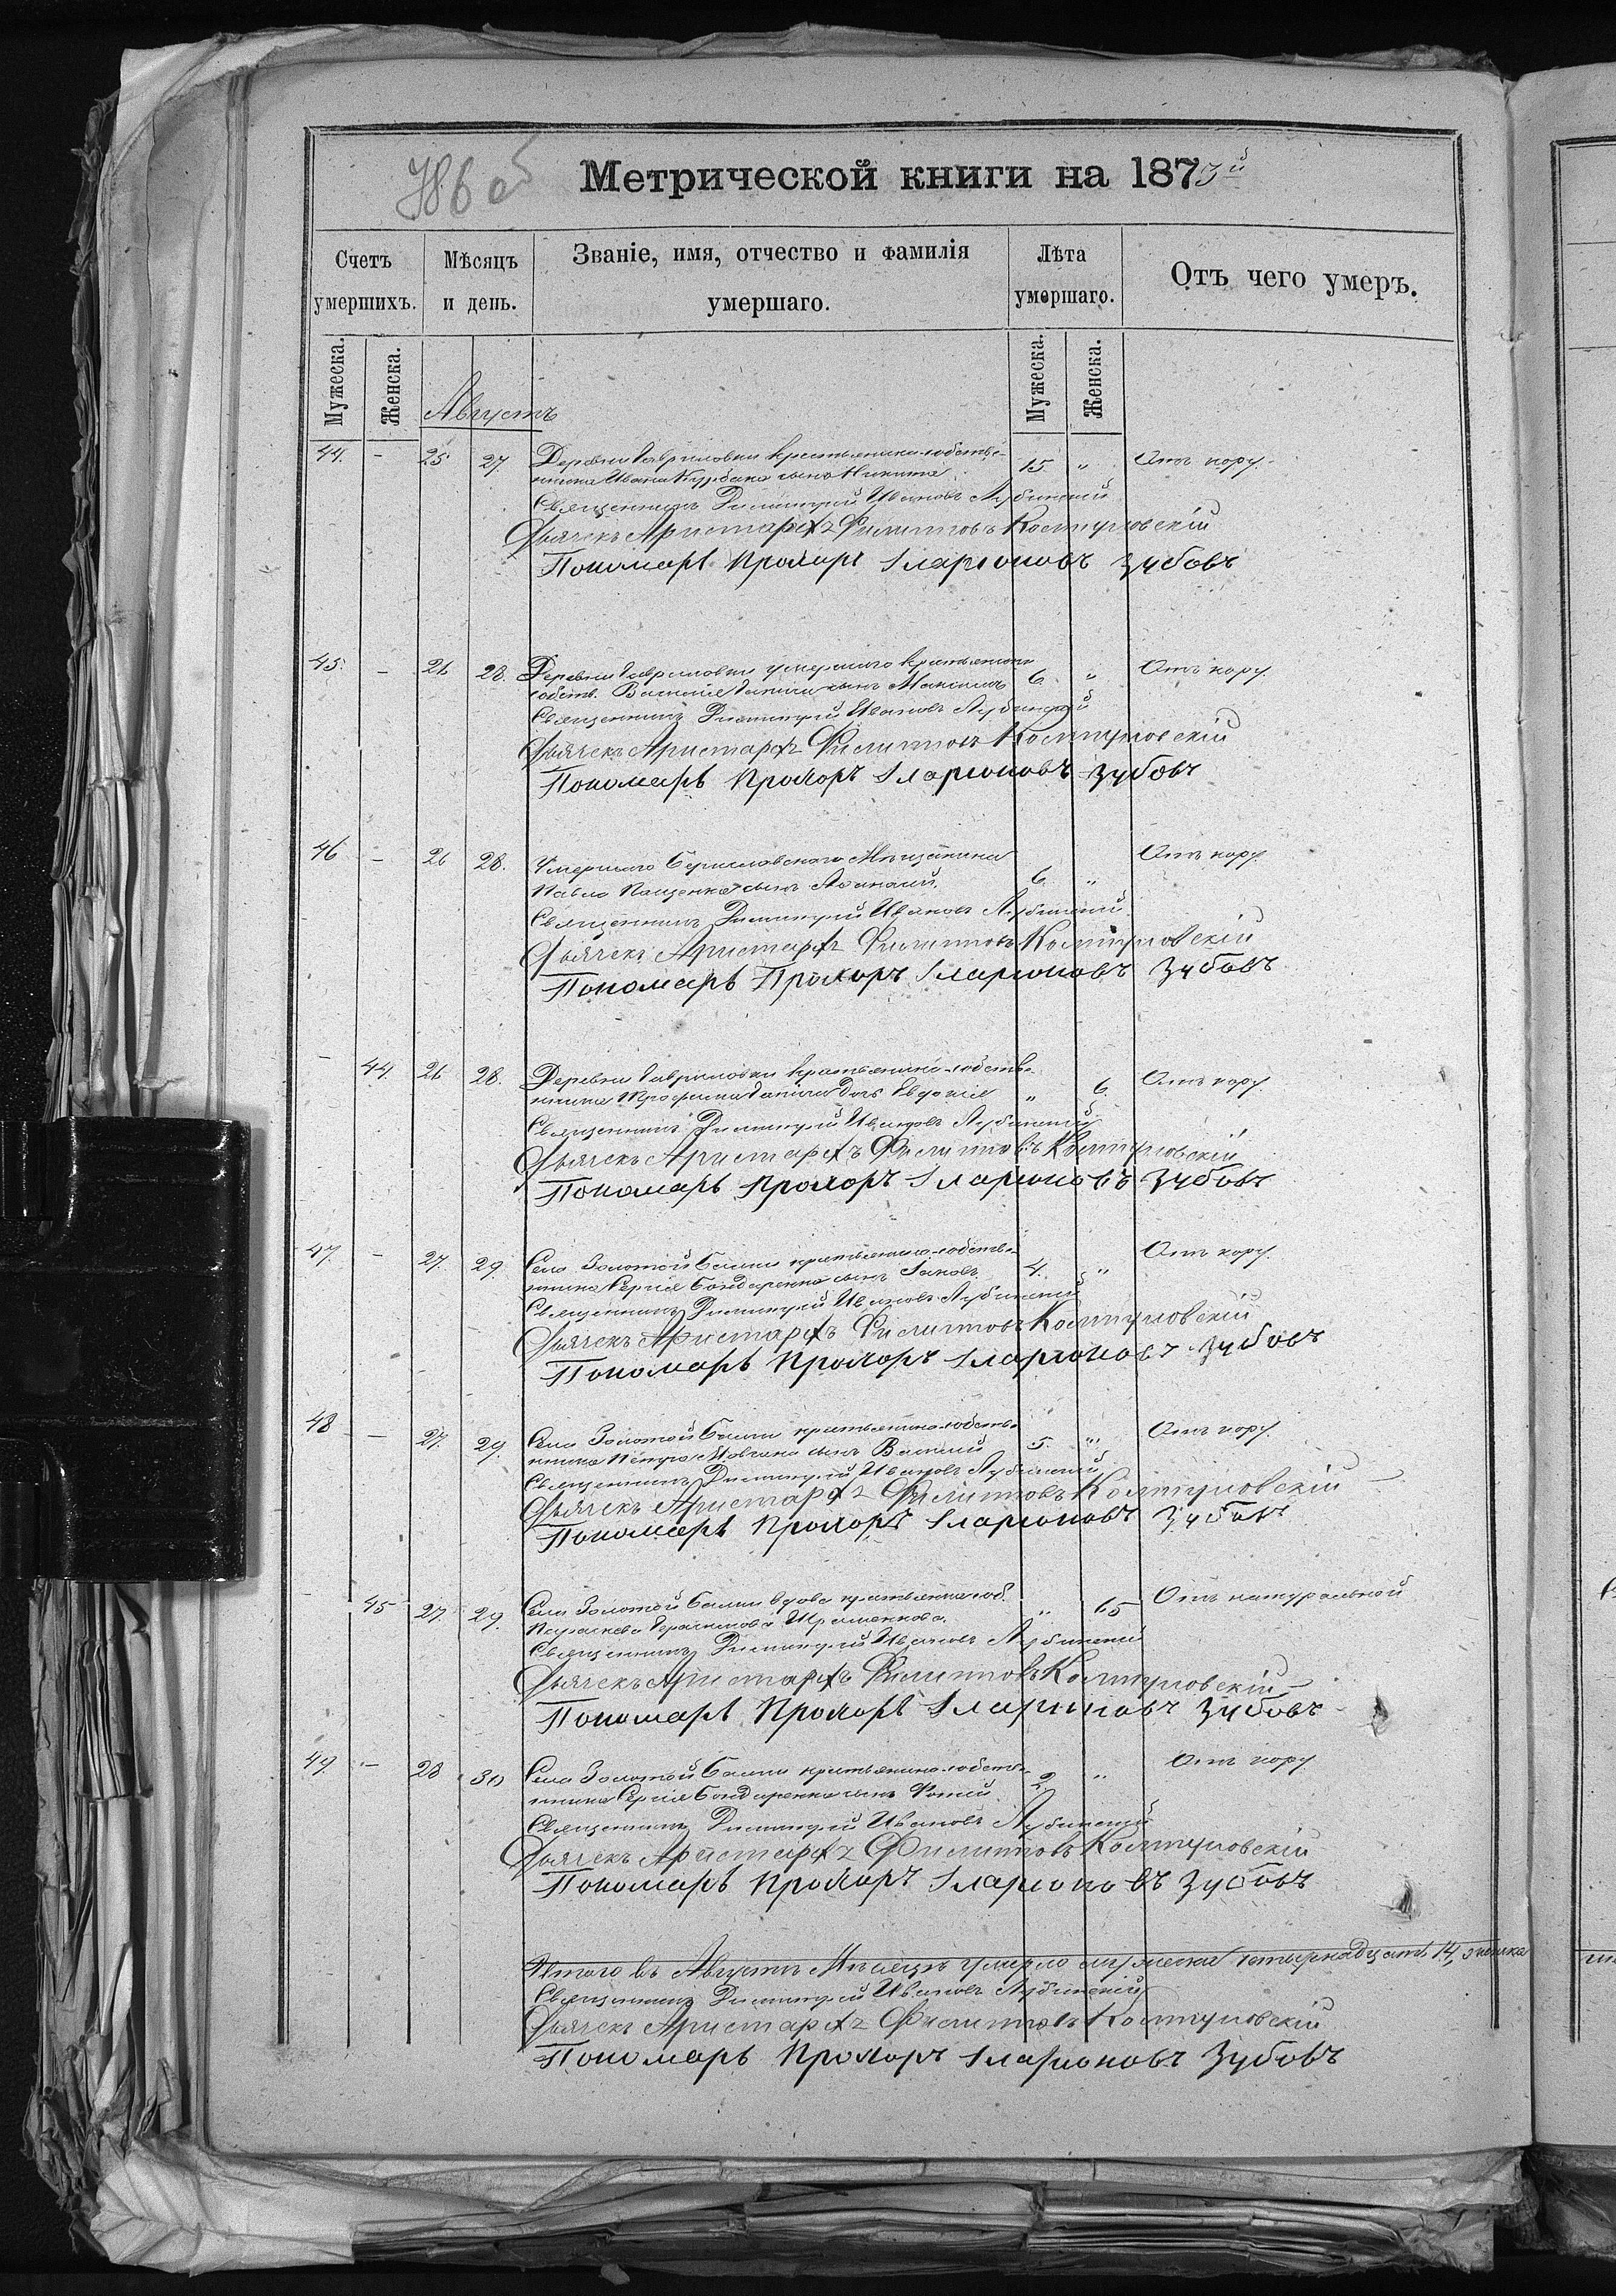 786 об
Метрической книги на 1873й
Счетъ умершихъ.
Мѣсяцъ и день.
Званіе, имя, отчество и фамилія умершаго.
Лѣта умершаго.
Отъ чего умеръ.
Мужеска.
Женска.
Мужеска.
Женска.
Августъ
44. - 25 27 Деревни Гавриловки крестьянина-собств- 15 " Отъ кору.
нника Ивана Курбака сынъ Никита
Священникъ Димитрій Ивановъ Лубинскій
Дьячекъ Аристархъ Филипповъ Колтуновскій
Пономарь Прохоръ Іларіоновъ Зубовъ
45. - 26 28. Деревни Гавриловки умершаго крестьянина 6. " Отъ кору.
собств. Василія сынъ Максимъ
Священникъ Димитрій Ивановъ Лубинскій
Дьячекъ Аристархъ Филипповъ Колтуновскій
Пономарь Прохоръ Іларіоновъ Зубовъ
46 - 26 28. Умершаго Бериславскаго Мѣщанина Отъ кору.
Павла Пащенка сынъ Аѳанасій. 6. "
Священникъ Димитрій Ивановъ Лубинскій
Дьячекъ Аристархъ Филипповъ Колтуновскій
Пономарь Прохоръ Іларіоновъ Зубовъ
- 44. 26 28. Деревни Гавриловки крестьянина-собстве- Отъ кору
нника Трофима дочь Евдокія " 6.
Священникъ Димитрій Ивановъ Лубинскій
Дьячекъ Аристархъ Филипповъ Колтуновскій
Пономарь Прохоръ Іларіоновъ Зубовъ
47. - 27. 29. Села Золотой Балки крестьянина-собстве- 4. " Отъ кору.
нника Сергія Бондаренка сынъ Іаковъ
Священникъ Димитрій Ивановъ Лубинскій
Дьячекъ Аристархъ Филипповъ Колтуновскій
Пономарь Прохоръ Іларіоновъ Зубовъ
48 - 27. 29. Села Золотой Балки крестьянина-собстве- 5. " Отъ кору.
нника Петра Мовчана сынъ Василій
Священникъ Димитрій Ивановъ Лубинскій
Дьячекъ Аристархъ Филипповъ Колтуновскій
Пономарь Прохоръ Іларіоновъ Зубовъ
45 27. 29. Села Золотой Балки вдова крестьянка соб. " 65 Отъ натуральной
Параскева Герасимова
Священникъ Димитрій Ивановъ Лубинскій
Дьячекъ Аристархъ Филипповъ Колтуновскій
Пономарь Прохоръ Іларіоновъ Зубовъ
49 - 28 30 Села Золотой Балки крестьянина-собстве- 2. " Отъ кору
нника Сергія Бондаренка сынъ Фотій.
Священникъ Димитрій Ивановъ Лубинскій
Дьячекъ Аристархъ Филипповъ Колтуновскій
Пономарь Прохоръ Іларіоновъ Зубовъ
Итого въ Августѣ Мѣсяцѣ умерло мужеска четырнадцать 14, женска
Священникъ Димитрій Ивановъ Лубинскій
Дьячекъ Аристархъ Филипповъ Колтуновскій
Пономарь Прохоръ Іларіоновъ Зубовъ